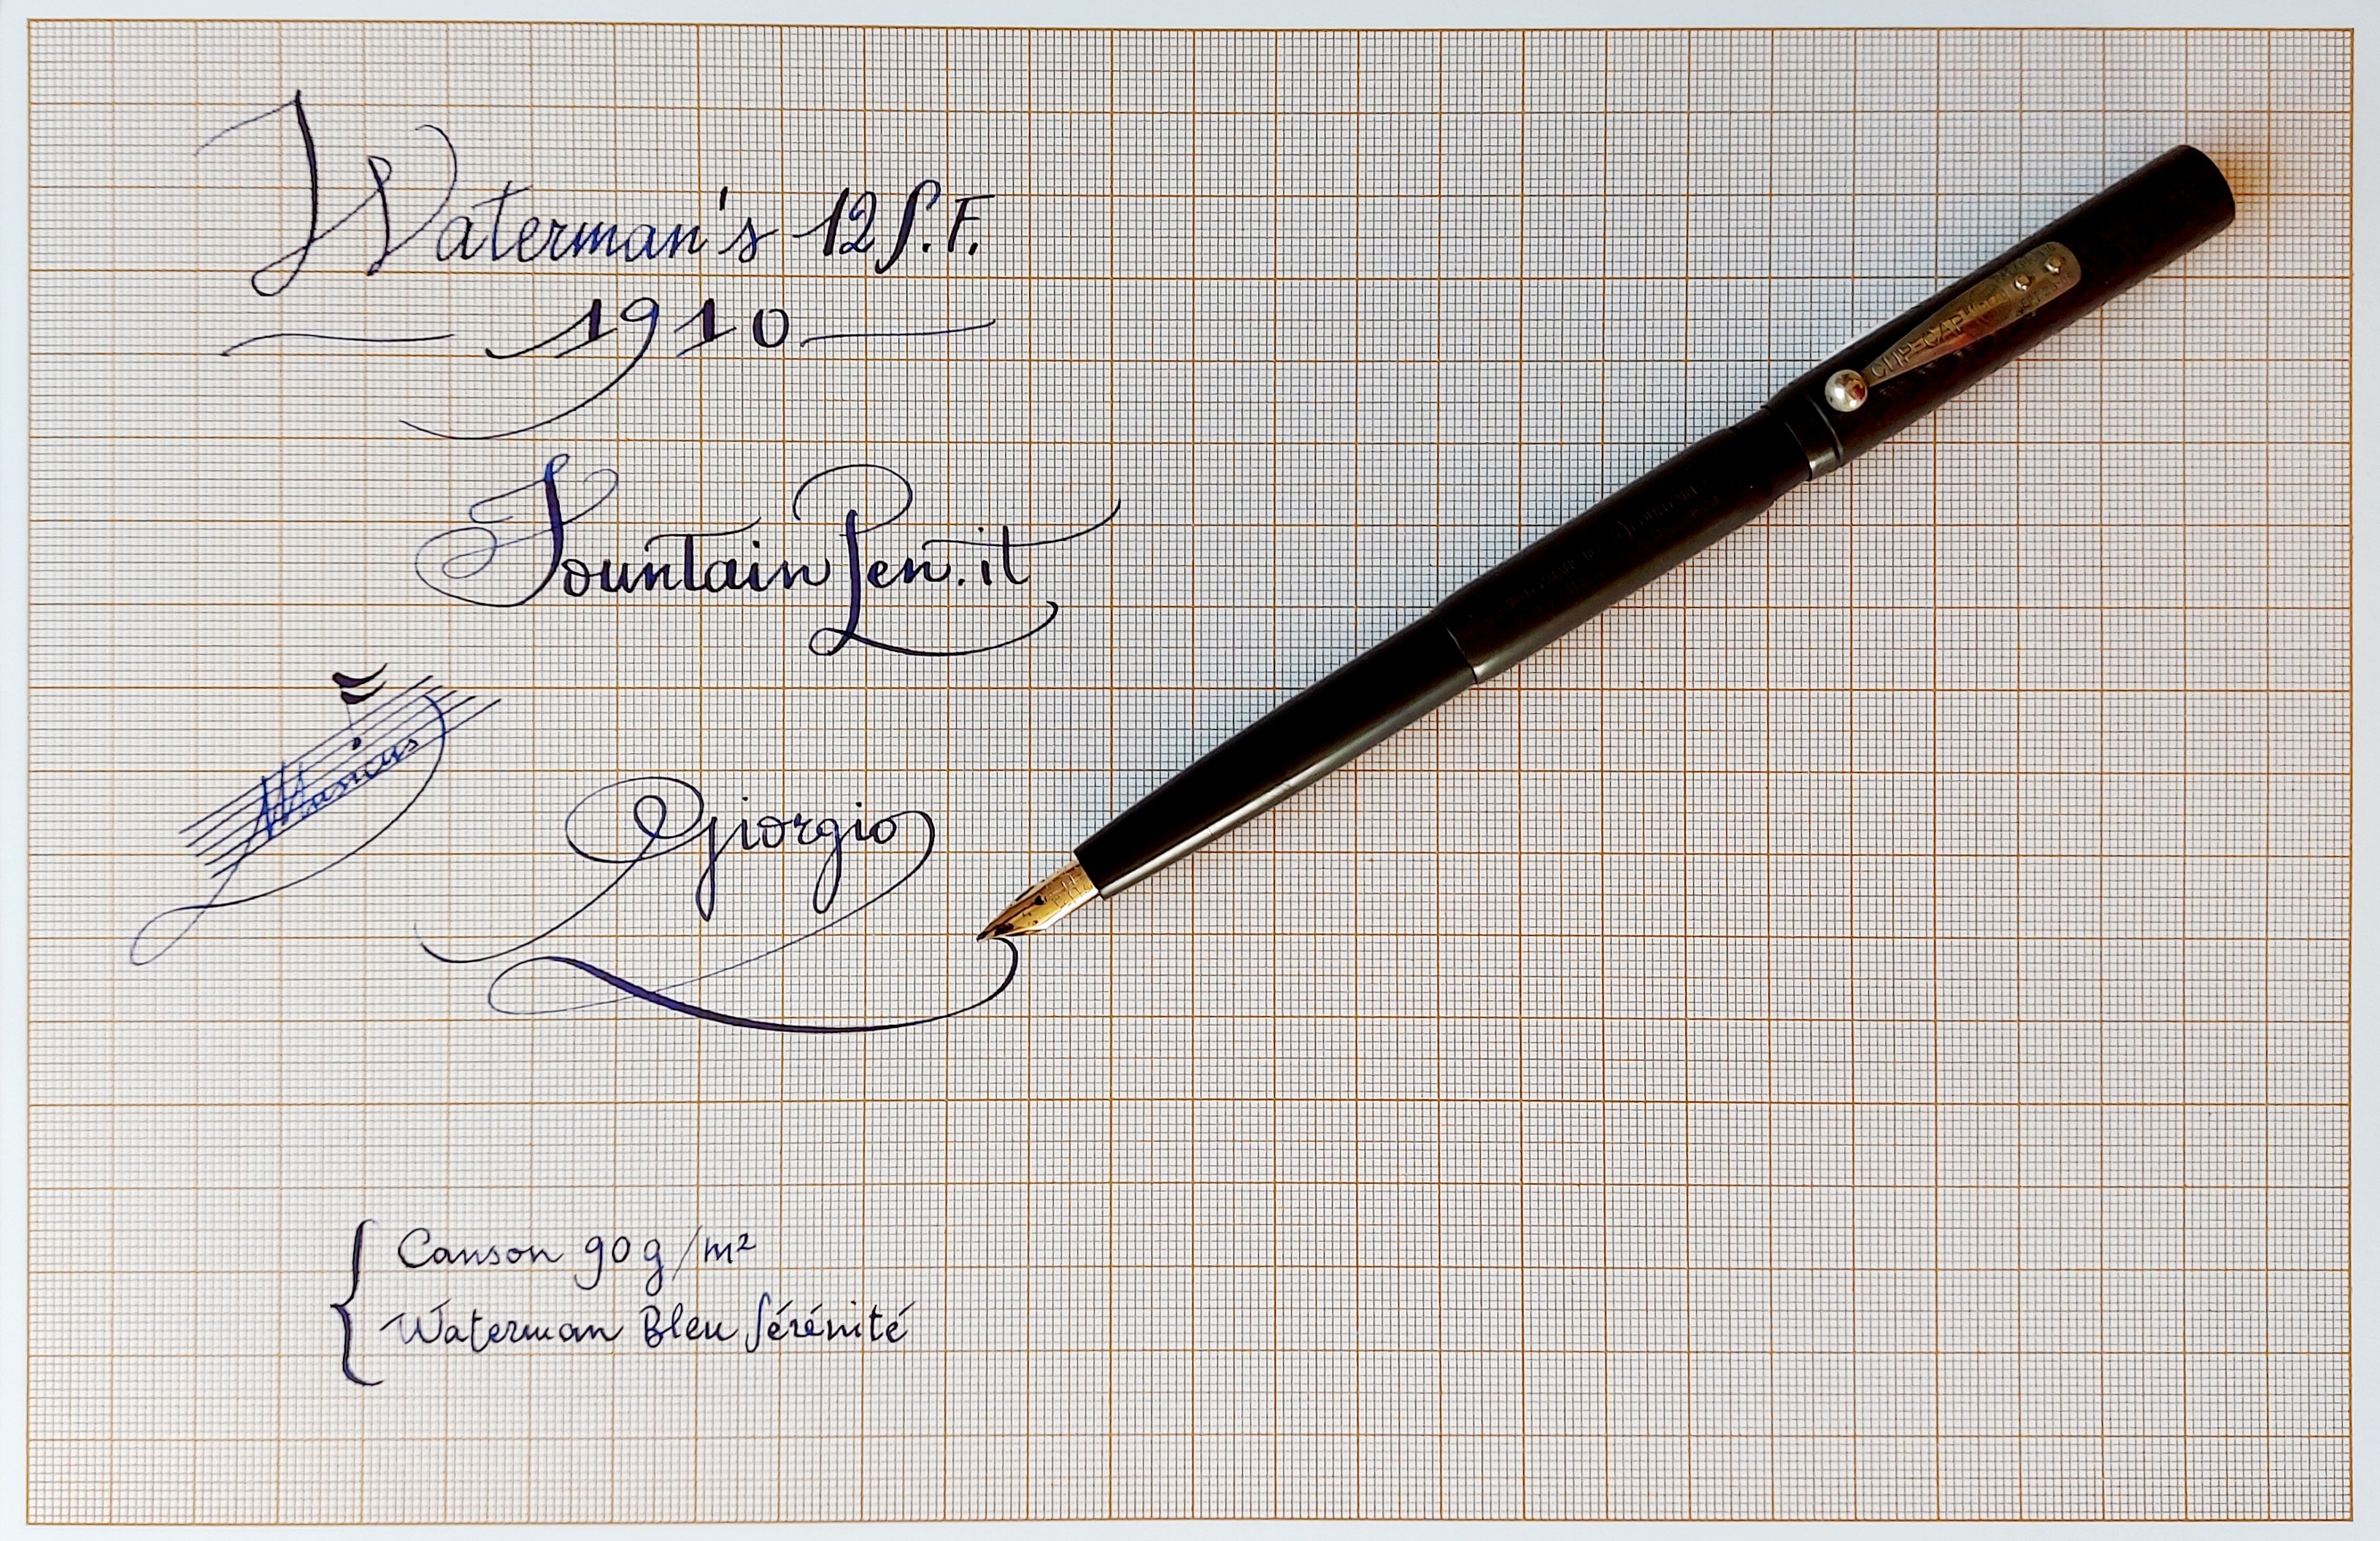 Waterman's 12 S.F.
1910
FountainPen.it
Musicus
Giorgio
Canson 90 g/m²
Waterman Bleu Sérénité
CLIP-CAP